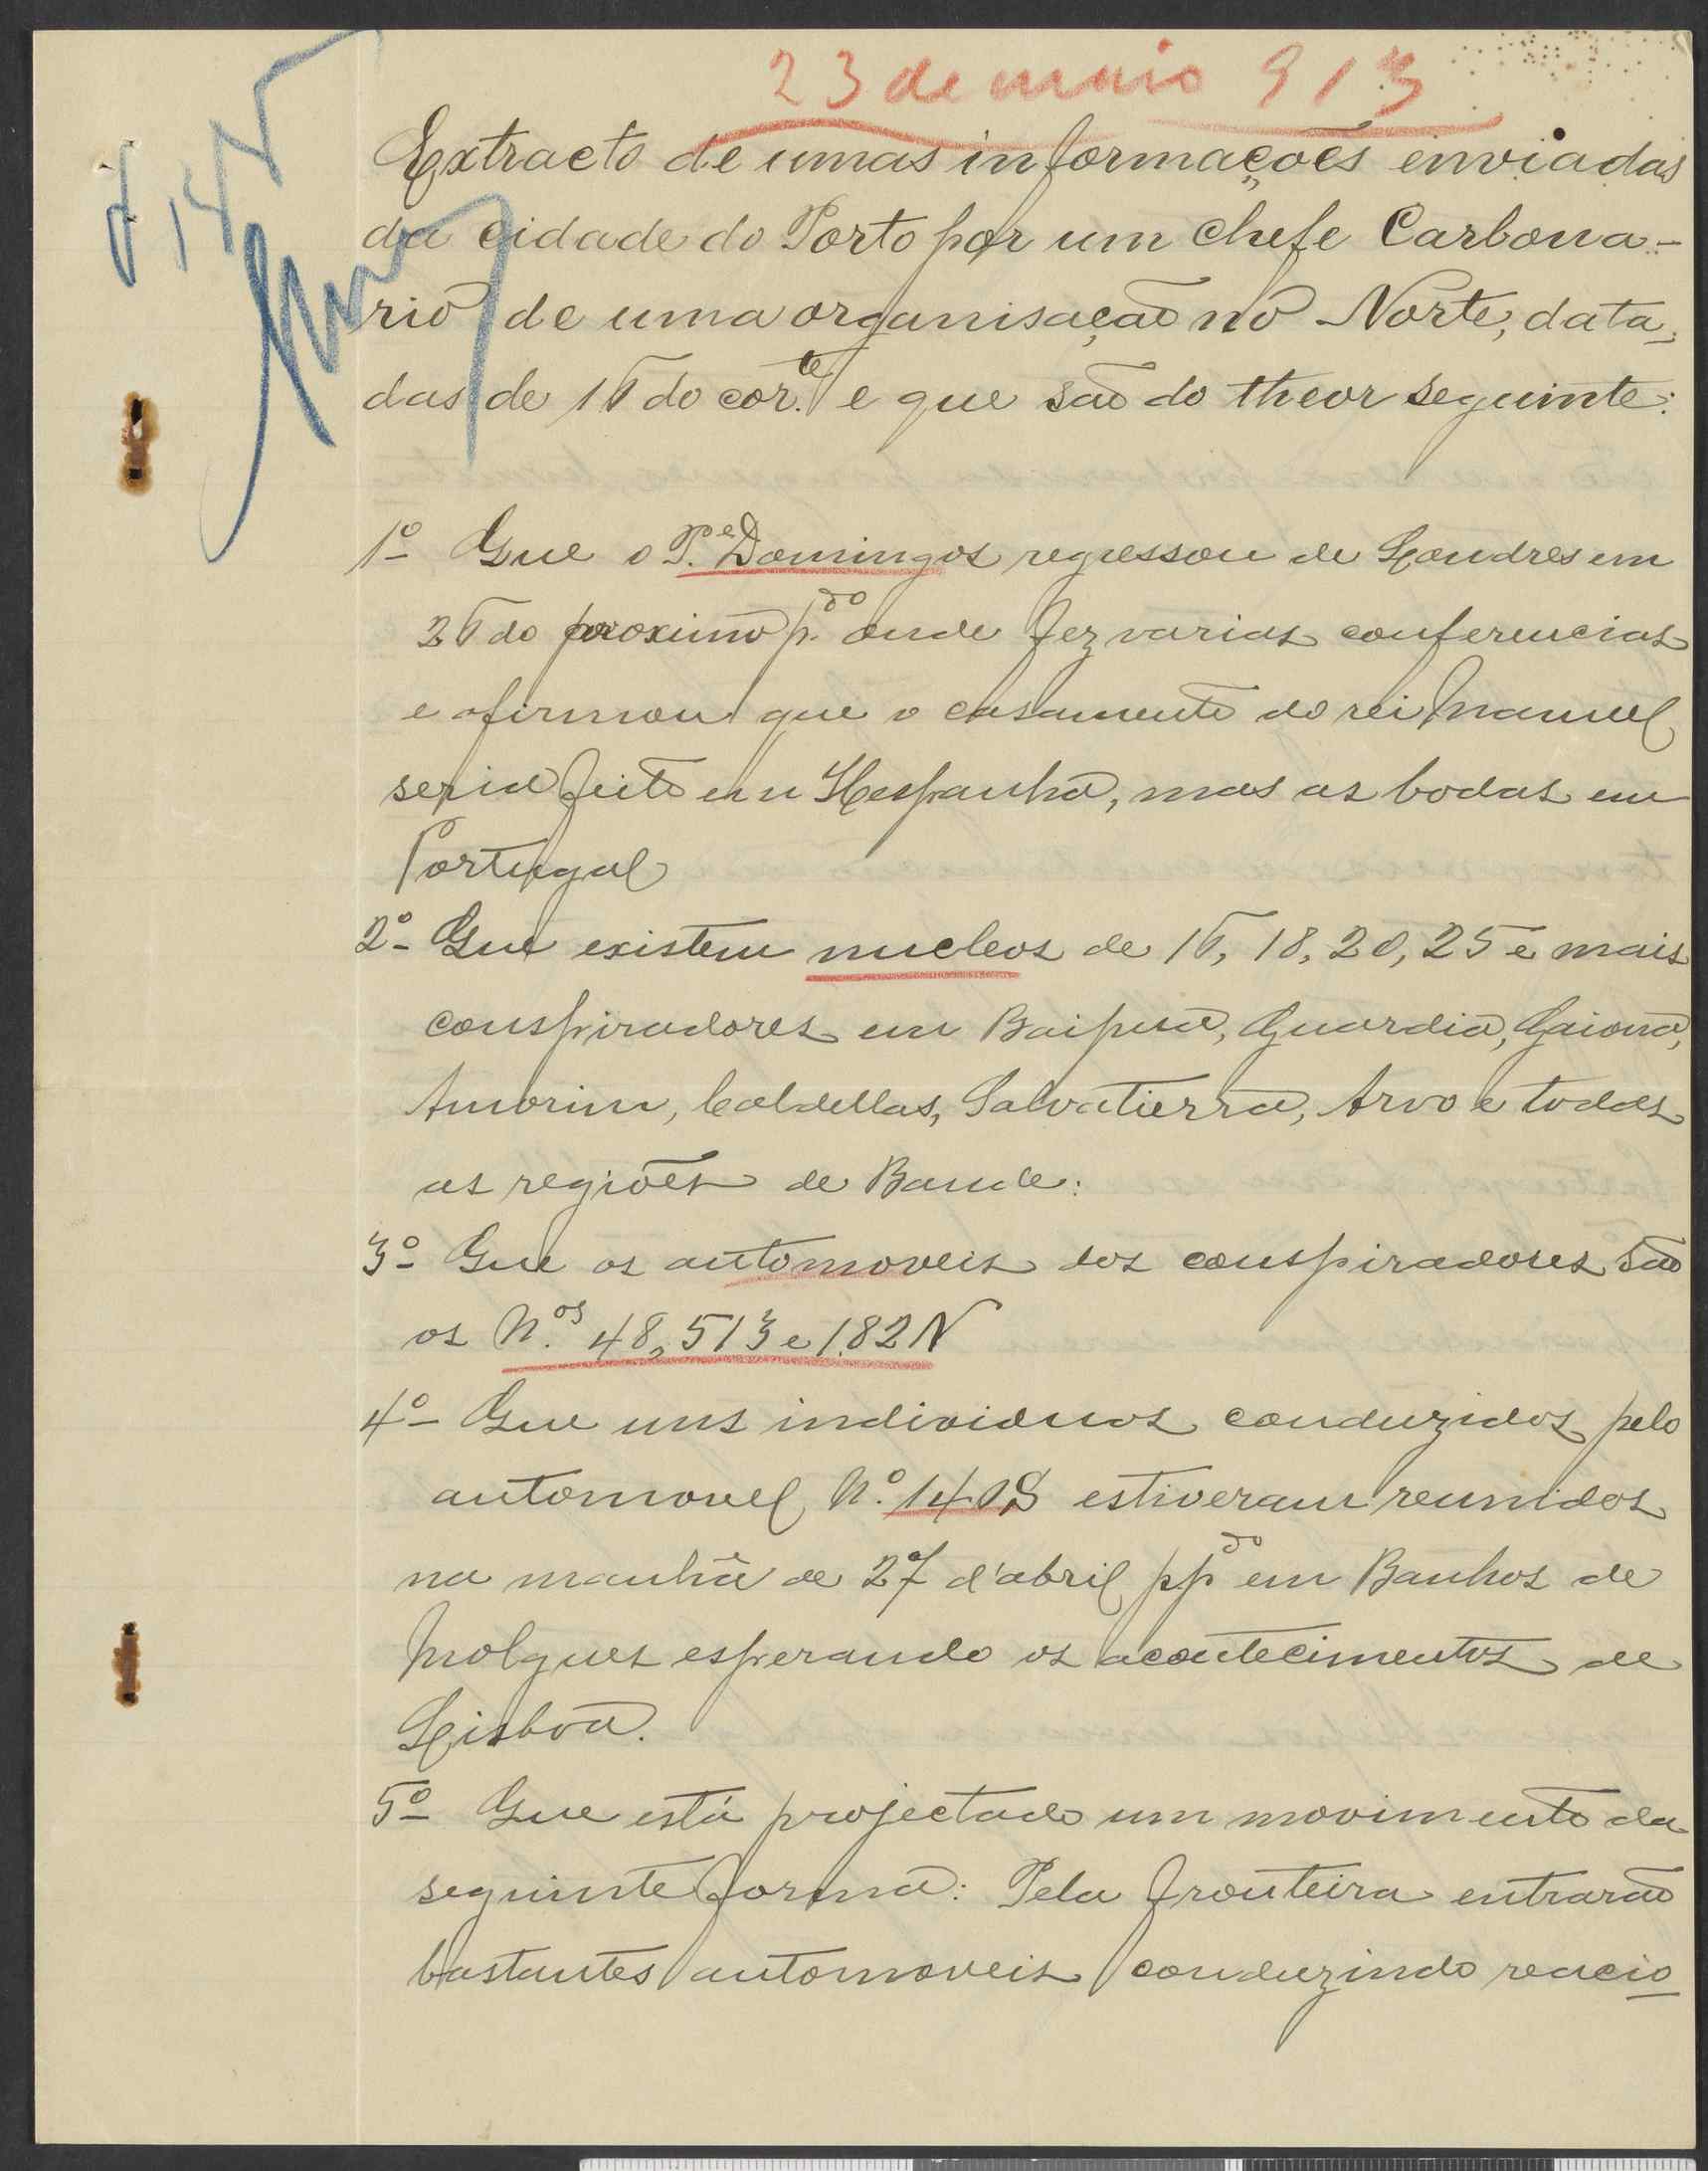 23 de maio 913
Extracto de umas informações enviadas
da cidade do Porto por um chefe Carbona-
rio de uma organisação no Norte, data-
das de 16 do cor.te e que são do theor seguinte:
1º Que o P.e Domingos regressou de Londres em
26 do proximo p.do onde fez varias conferencias
e afirmou que o casamento do rei Manuel
seria feito em Hespanha, mas as bodas em
Portugal
2º- Que existem nucleos de 16, 18, 20, 25 e mais
conspiradores em Guardia,
Amorim, Caldellas, Salvatierra, Arvo e todas
as regiões de Bande:
3º- Que os automoveis dos conspiradores são
os N.os 48, 513 e 182 N
4º- Que uns individuos conduzidos pelo
automovel N.º estiveram reunidos
na manhã de 27 d'abril p.p.do em Banhos de
Molgues esperando os acontecimentos de
Lisboa.
5º- Que está projectado um movimento da
seguinte forma: Pela fronteira entrarão
bastantes automoveis conduzindo reacio-